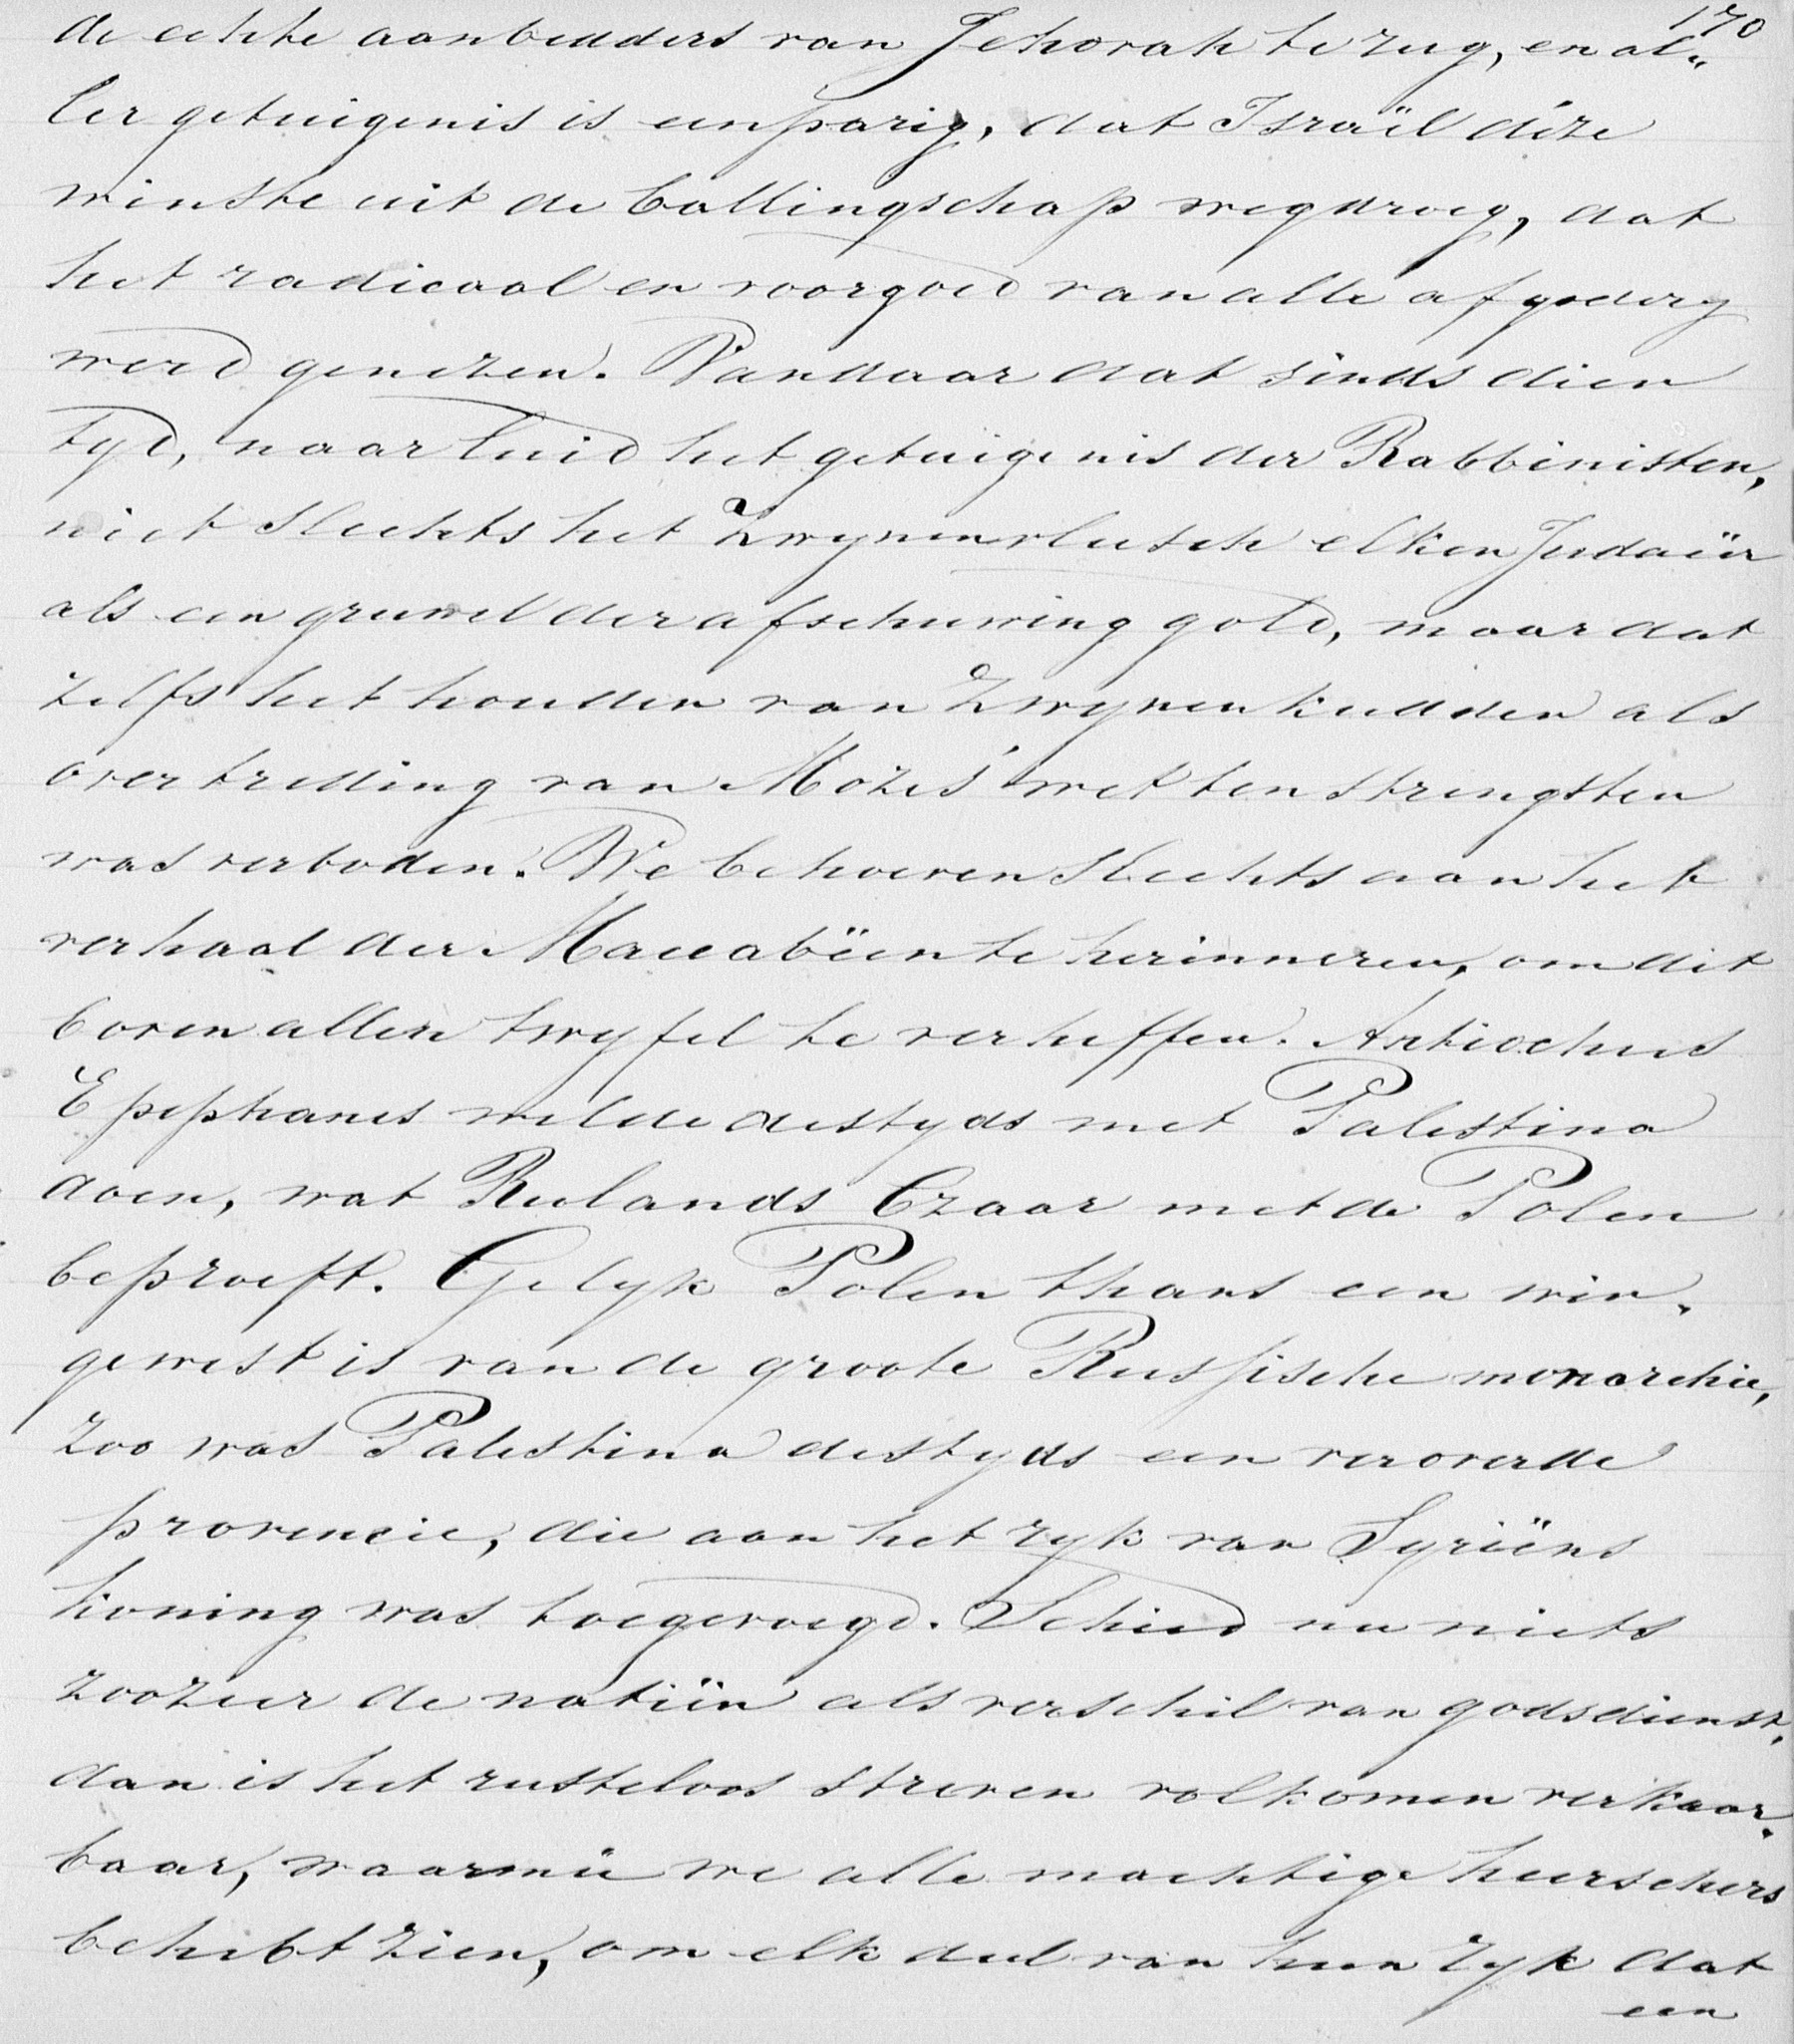 170
de echte aanbidders van Jehovah terug, en al„
ler getuigenis is eenparig, dat Israël déze
winste uit de ballingschap wegdroeg, dat
het radicaal en voorgoed van alle afgodery
werd genezen. Vandaar dat sinds dien
tyd, naar luid het getuigenis der Rabbinisten,
niet slechts het zwynenvleesch elken Judaiër
als een gruwel der afschuwing gold, maar dat
zelfs het houden van zwynenkudden als
overtreding van Mozes' wet ten strengsten
was verboden. We behoeven slechts aan het
verhaal der Maccabëen te herinneren, om dit
boven allen twyfel te verheffen. Antiochus
Epiphanes wilde destyds met Palestina
doen, wat Ruslands Czaar met de Polen
beproeft. Gelyk Polen thans een win„
gewest is van de groote Russische monarchie,
zoo was Palestina destyds een veroverde
provincie, die aan het ryk van Syriëns
koning was toegevoegd. Scheid nu niets
zoozeer de natiën als verschil van godsdienst,
dan is het rusteloos streven volkomen verkaar„
baar, waarmeê we alle machtige heerschers
behebt zien, om elk deel van hun ryk dat
een